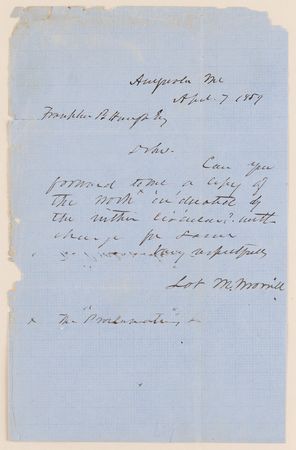 Augusta Me
April 7 1859
Franklin B Hough Esq
Dr Sir.
Can you
forward to me a copy of
the work indicated by
the within circular? with
charge for same
Very respectfully
Lot M. Morrill
"The Proclamations"